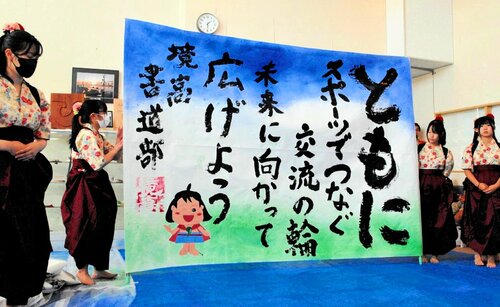 ともに
スポーツでつなぐ
交流の輪
未来に向かって
広げよう
境高
書道部